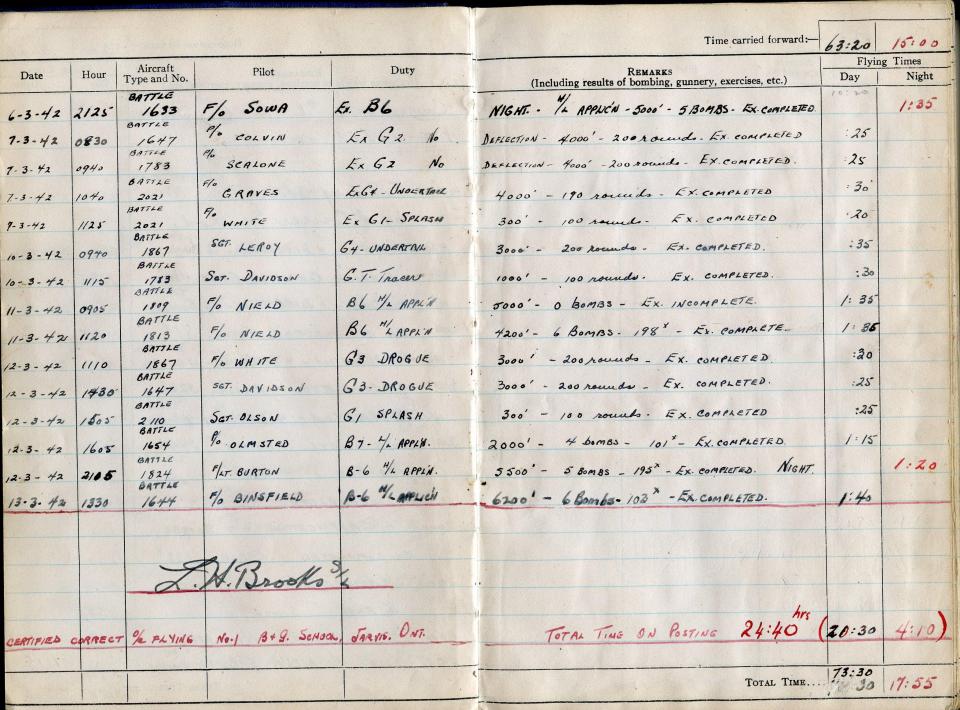 Time carried forward:— 63:20 15:00
Date Hour Aircraft Type and No. Pilot Duty REMARKS (Including results of bombing, gunnery, exercises, etc.) Flying Times Day Night
6-3-42 2125 BATTLE 1633 F/O SOWA Ex. B6 NIGHT - H/L APPLIC'N - 5000' - 5 BOMBS - EX. COMPLETED 1:35
7-3-42 0830 BATTLE 1647 P/O COLVIN Ex G2 No DEFLECTION - 4000' - 200 rounds - EX. COMPLETED :25
7-3-42 0940 BATTLE 1783 P/O SCALONE Ex G2 No DEFLECTION - 4000' - 200 rounds - EX. COMPLETED. :25
7-3-42 1040 BATTLE 2021 F/O GRAVES Ex G4 - UNDERTAIL 4000' - 190 rounds - EX. COMPLETED :30
9-3-42 1125 BATTLE 2021 F/O WHITE Ex G1 - SPLASH 300' - 100 rounds - EX. COMPLETED :20
10-3-42 0940 BATTLE 1867 SGT. LEROY G4 - UNDERTAIL 3000' - 200 rounds - EX. COMPLETED. :35
10-3-42 1115 BATTLE 1783 SGT. DAVIDSON G.T. Tracer 1000' - 100 rounds - EX. COMPLETED. :30
11-3-42 0905 BATTLE 1809 F/O NIELD B6 H/L APPL'N 5000' - 0 BOMBS - EX. INCOMPLETE. 1:35
11-3-42 1120 BATTLE 1813 F/O NIELD B6 H/L APPL'N 4200' - 6 BOMBS - 198ˣ - EX. COMPLETE 1:35
12-3-42 1110 BATTLE 1867 F/O WHITE G3 DROGUE 3000' - 200 rounds - EX. COMPLETED :20
12-3-42 1430 BATTLE 1647 SGT. DAVIDSON G3 - DROGUE 3000' - 200 rounds - EX. COMPLETED. :25
12-3-42 1505 BATTLE 2110 SGT. OLSON G1 SPLASH 300' - 100 rounds - EX. COMPLETED :25
12-3-42 1605 BATTLE 1654 P/O OLMSTED B7 - H/L APPL'N. 2000' - 4 bombs - 101ˣ - EX. COMPLETED 1:15
12-3-42 2105 BATTLE 1824 F/LT BURTON B-6 H/L APPL'N. 5500' - 5 BOMBS - 195ˣ - EX. COMPLETED. NIGHT. 1:20
13-3-42 1330 BATTLE 1644 F/O BINSFIELD B-6 H/L APPLIC'N 6200' - 6 BOMBS - 103ˣ - EX. COMPLETED. 1:40
L.H. Brooks S/L
CERTIFIED CORRECT O/C FLYING NO.1 B & G. SCHOOL, JARVIS. ONT. TOTAL TIME ON POSTING 24:40 hrs (20:30 4:10)
73:30
TOTAL TIME.... :30 17:55